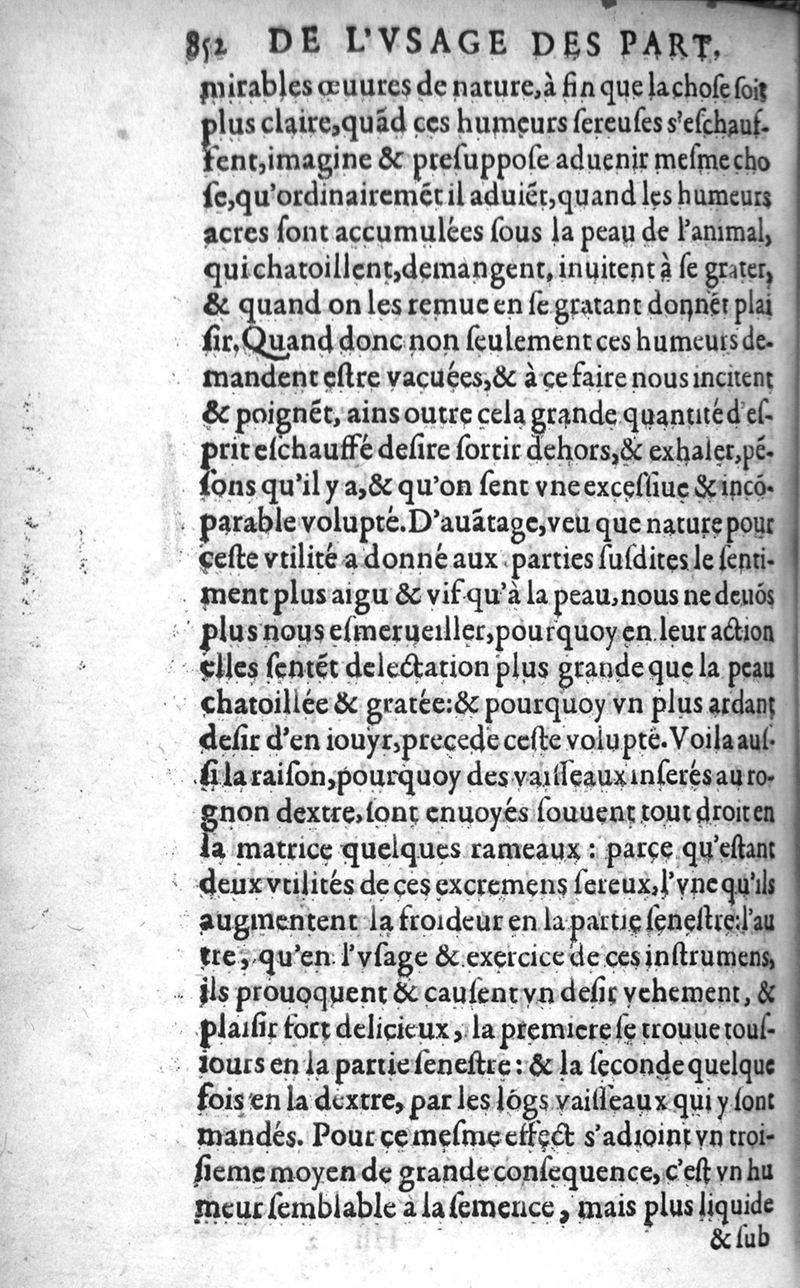 852 DE L'VSAGE DES PART,
mirables œuures de nature,à fin que la choſe ſoit
plus claire,quãd ces humeurs ſereuſes s'eſchauf-
fent,imagine & preſuppoſe aduenir meſme cho
ſe,qu'ordinairemẽt il aduiẽt,quand les humeurs
acres ſont accumulées ſous la peau de l'animal,
qui chatoillent,demangent, inuitent à ſe grater,
& quand on les remue en ſe gratant donnẽt plai
ſir,Quand donc non ſeulement ces humeurs de-
mandent eſtre vacuées,& à ce faire nous incitent
& poignẽt, ains outre cela grande quantité d'eſ-
prit eſchauffé deſire ſortir dehors,& exhaler,pẽ-
ſons qu'il y a,& qu'on ſent vne exceſſiue & incõ-
parable volupté.D'auãtage,veu que nature pour
ceſte vtilité a donné aux parties ſuſdites le ſenti-
ment plus aigu & vif qu'à la peau,nous ne deuõs
plus nous eſmerueiller,pourquoy en leur action
elles ſentẽt delectation plus grande que la peau
chatoillée & gratée:& pourquoy vn plus ardant
deſir d'en iouyr,precede ceſte volupté.Voila auſ-
ſi la raiſon,pourquoy des vaiſſeaux inſerés au ro-
gnon dextre,ſont enuoyés ſouuent tout droit en
la matrice quelques rameaux : parce qu'eſtant
deux vtilités de ces excremens ſereux,l'vne qu'ils
augmentent la froideur en la partie ſeneſtre:l'au
tre, qu'en l'vſage & exercice de ces inſtrumens,
ils prouoquent & cauſent vn deſir vehement, &
plaiſir fort delicieux, la premiere ſe trouue touſ-
iours en la partie ſeneſtre : & la ſeconde quelque
fois en la dextre, par les lõgs vaiſſeaux qui y ſont
mandés. Pour ce meſme effect s'adioint vn troi-
ſieme moyen de grande conſequence, c'eſt vn hu
meur ſemblable à la ſemence, mais plus liquide
& ſub